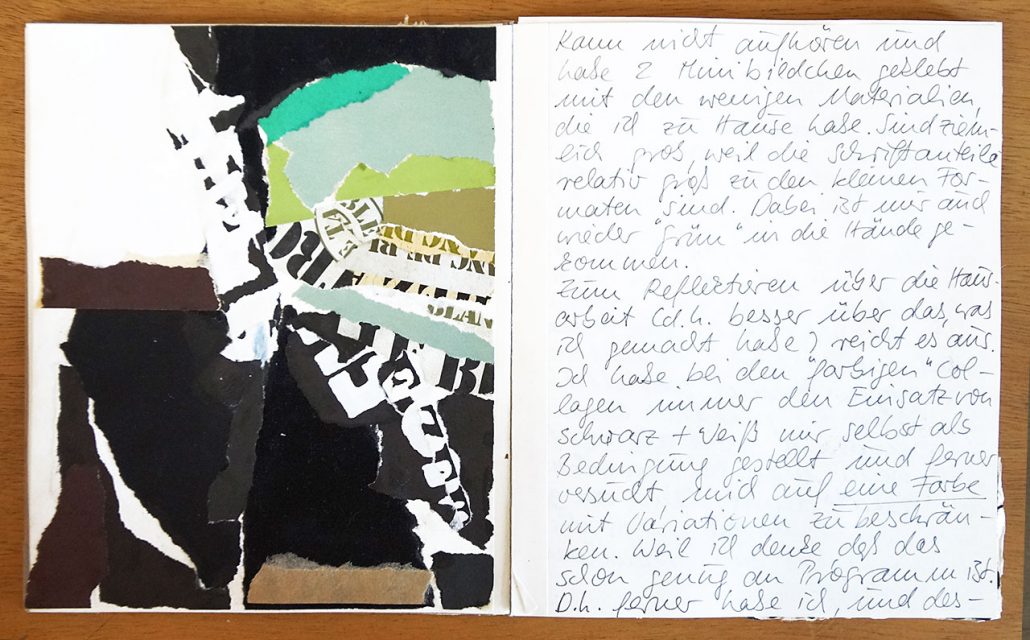 Kann nicht aufhören und
habe 2 Minibildchen geklebt
mit den wenigen Materialien,
die ich zu Hause habe. Sind ziem-
lich groß, weil die Schriftanteile
relativ groß zu den kleinen For-
maten sind. Dabei ist mir auch
wieder "grün" in die Hände ge-
kommen.
Zum Reflektieren über die Haus-
arbeit (d.h. besser über das, was
ich gemacht habe) reicht es aus.
Ich habe bei den "farbigen" Col-
lagen immer den Einsatz von
schwarz + weiß mir selbst als
Bedingung gestellt und ferner
versucht mich auf eine Farbe
mit Variationen zu beschrän-
ken. Weil ich denke daß das
schon genug an Programm ist.
D.h. ferner habe ich, und des-